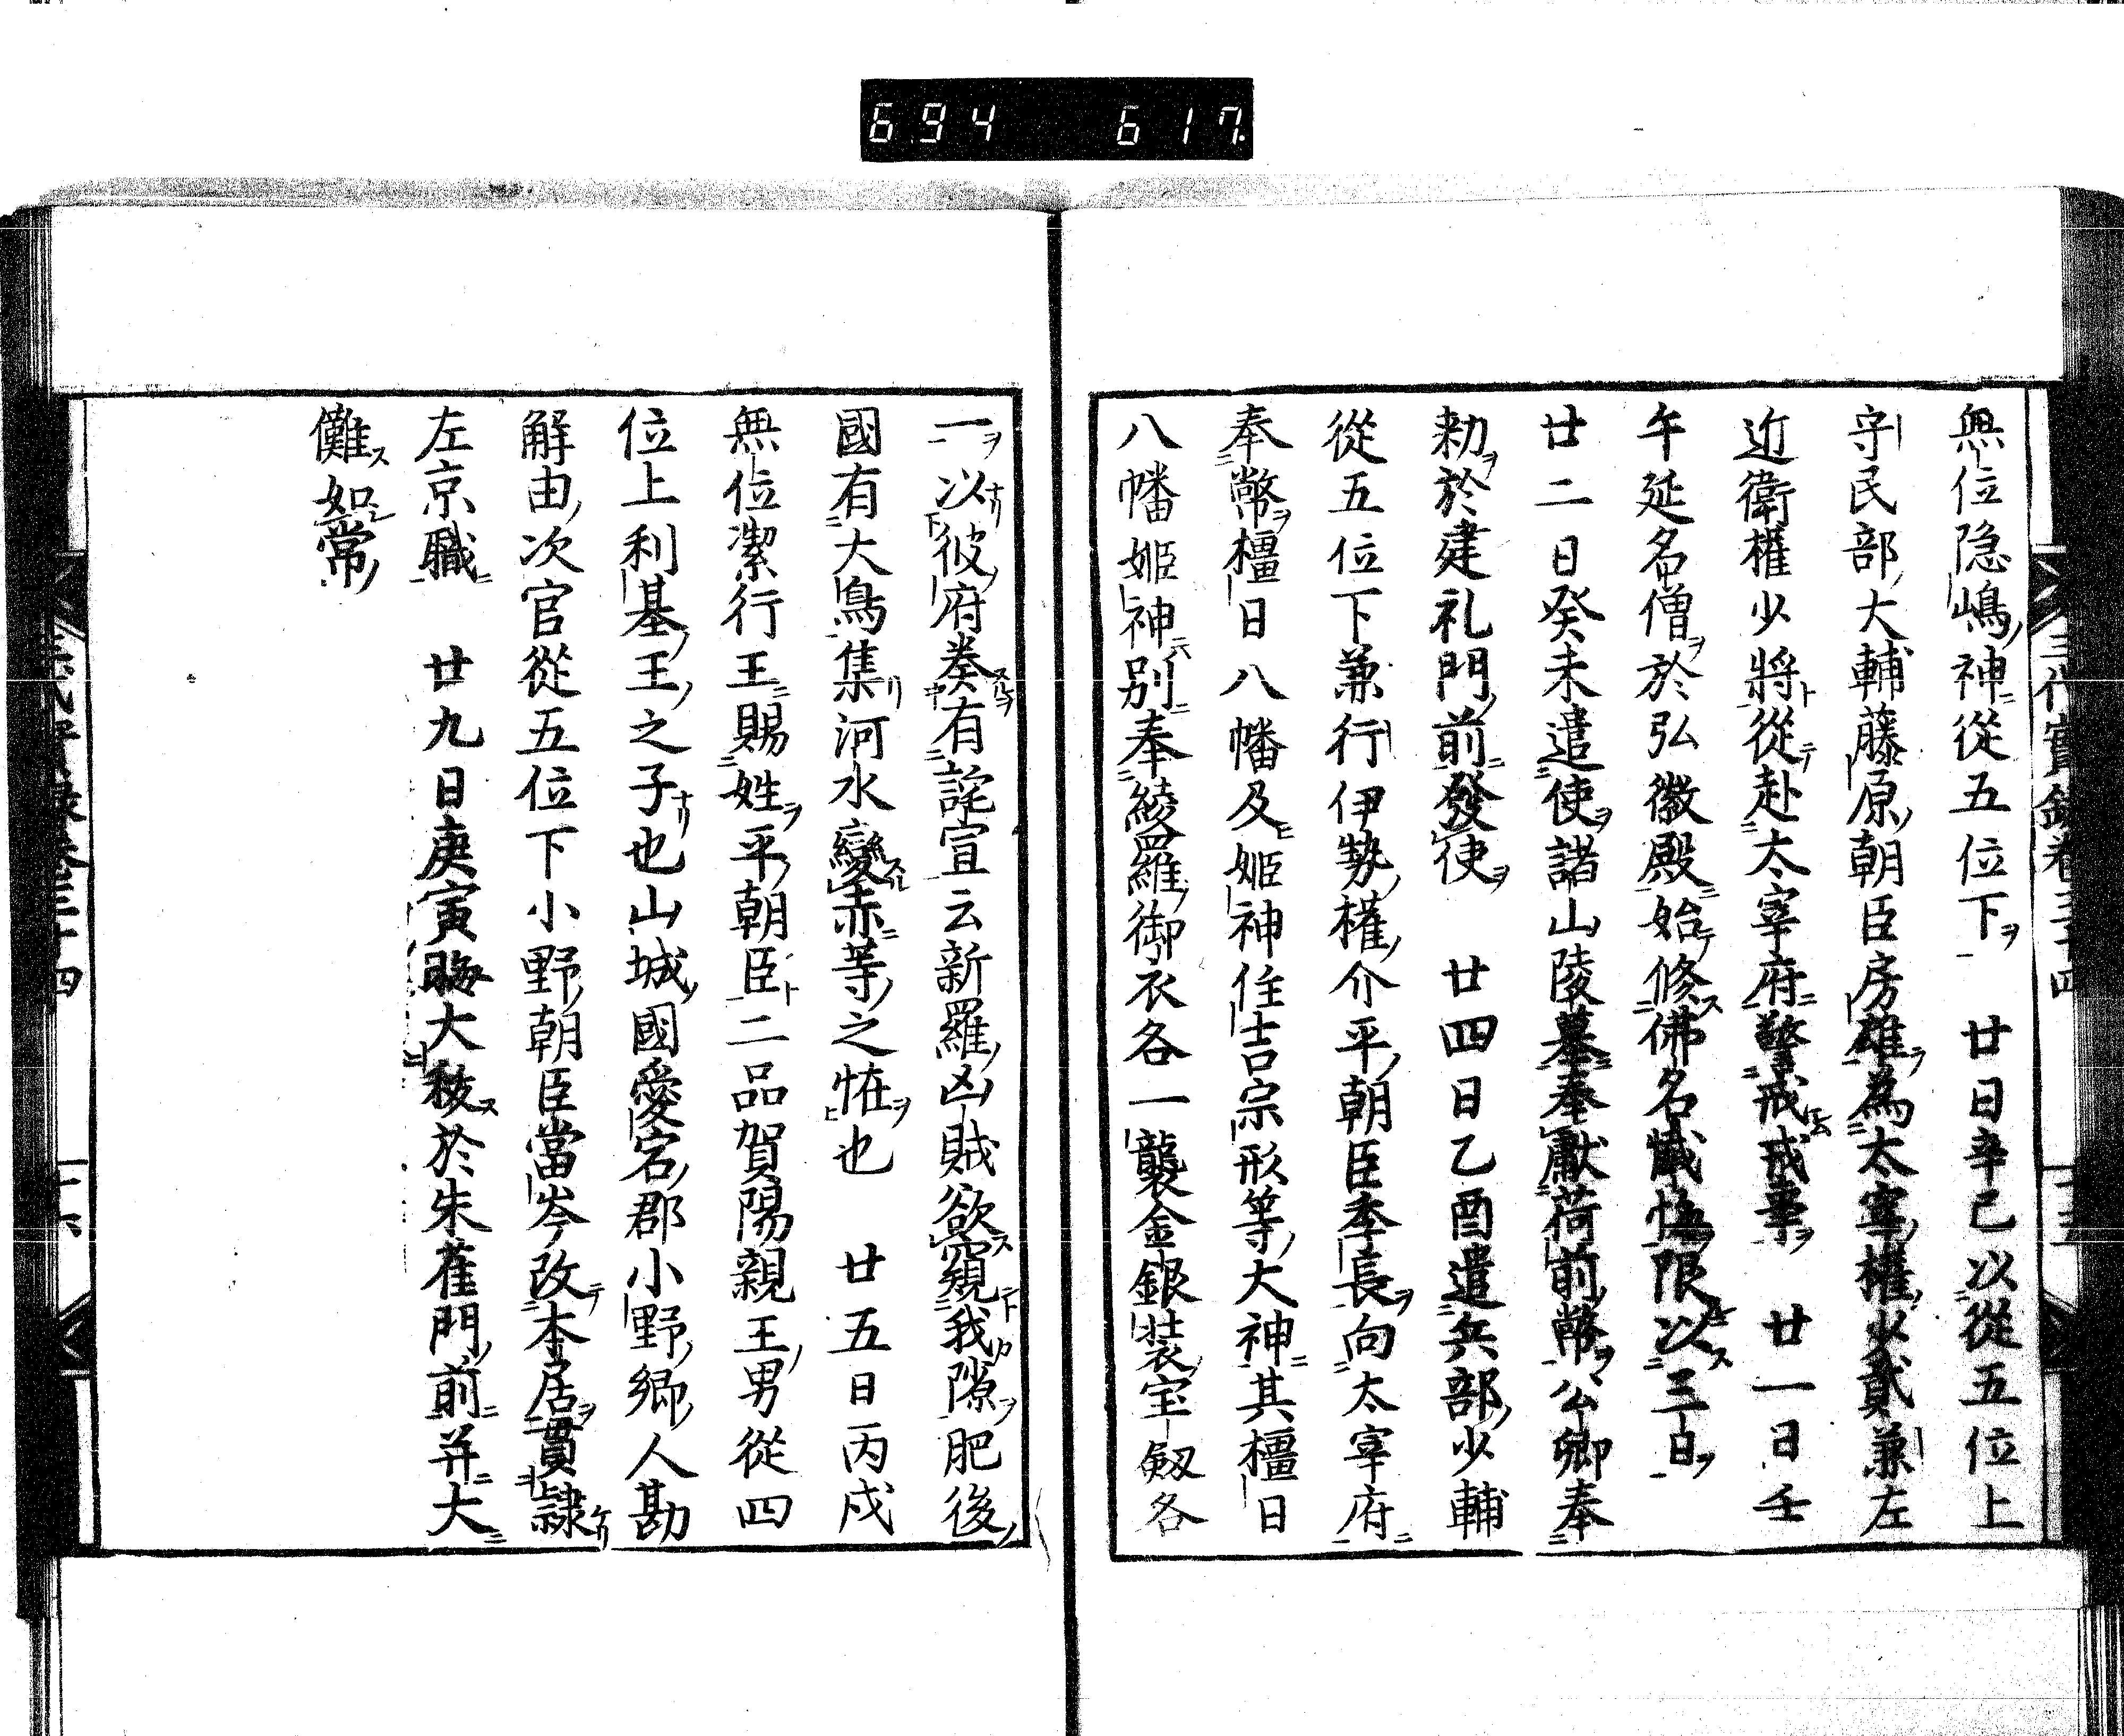 694 617
三代實錄卷三十四
無位隐嶋神從五位下 廿日辛已以從五位上
守民部大輔藤原朝臣房雄為太宰權少貳兼左
近衛權少將從赴太宰府警戒戎事 廿一日壬
午延名僧於弘徽殿始修佛名懺悔限以三日
廿二日癸未遣使諸山陵墓奉獻荷前幣公卿奉
勅於建礼門前發使 廿四日乙酉遣兵部少輔
從五位下兼行伊勢權介平朝臣季長向太宰府
奉幣橿日八幡及姬神住吉宗形等大神其橿日
八幡姬神別奉綾羅御衣各一襲金銀装宝劔各
一以彼府奏有詫宣云新羅凶賊欲窺我隙肥後
國有大鳥集河水變赤等之恠也 廿五日丙戌
無位潔行王賜姓平朝臣二品賀陽親王男從四
位上利基王之子也山城國愛宕郡小野鄉人勘
解由次官從五位下小野朝臣當岑改本居貫隷
左京職 廿九日庚寅晦大秡於朱雀門前并大
儺如常